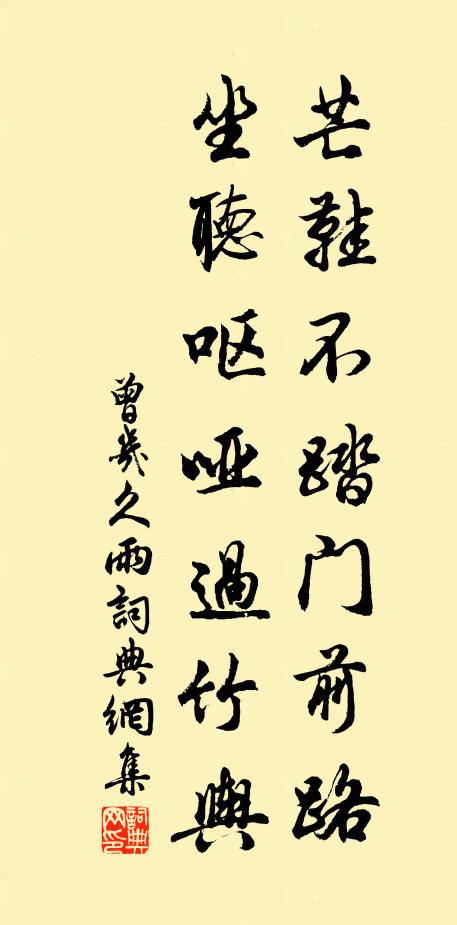 芒鞋不踏门前路
坐聽呕哑過竹輿
曾幾久雨詞典網集
詞典网印